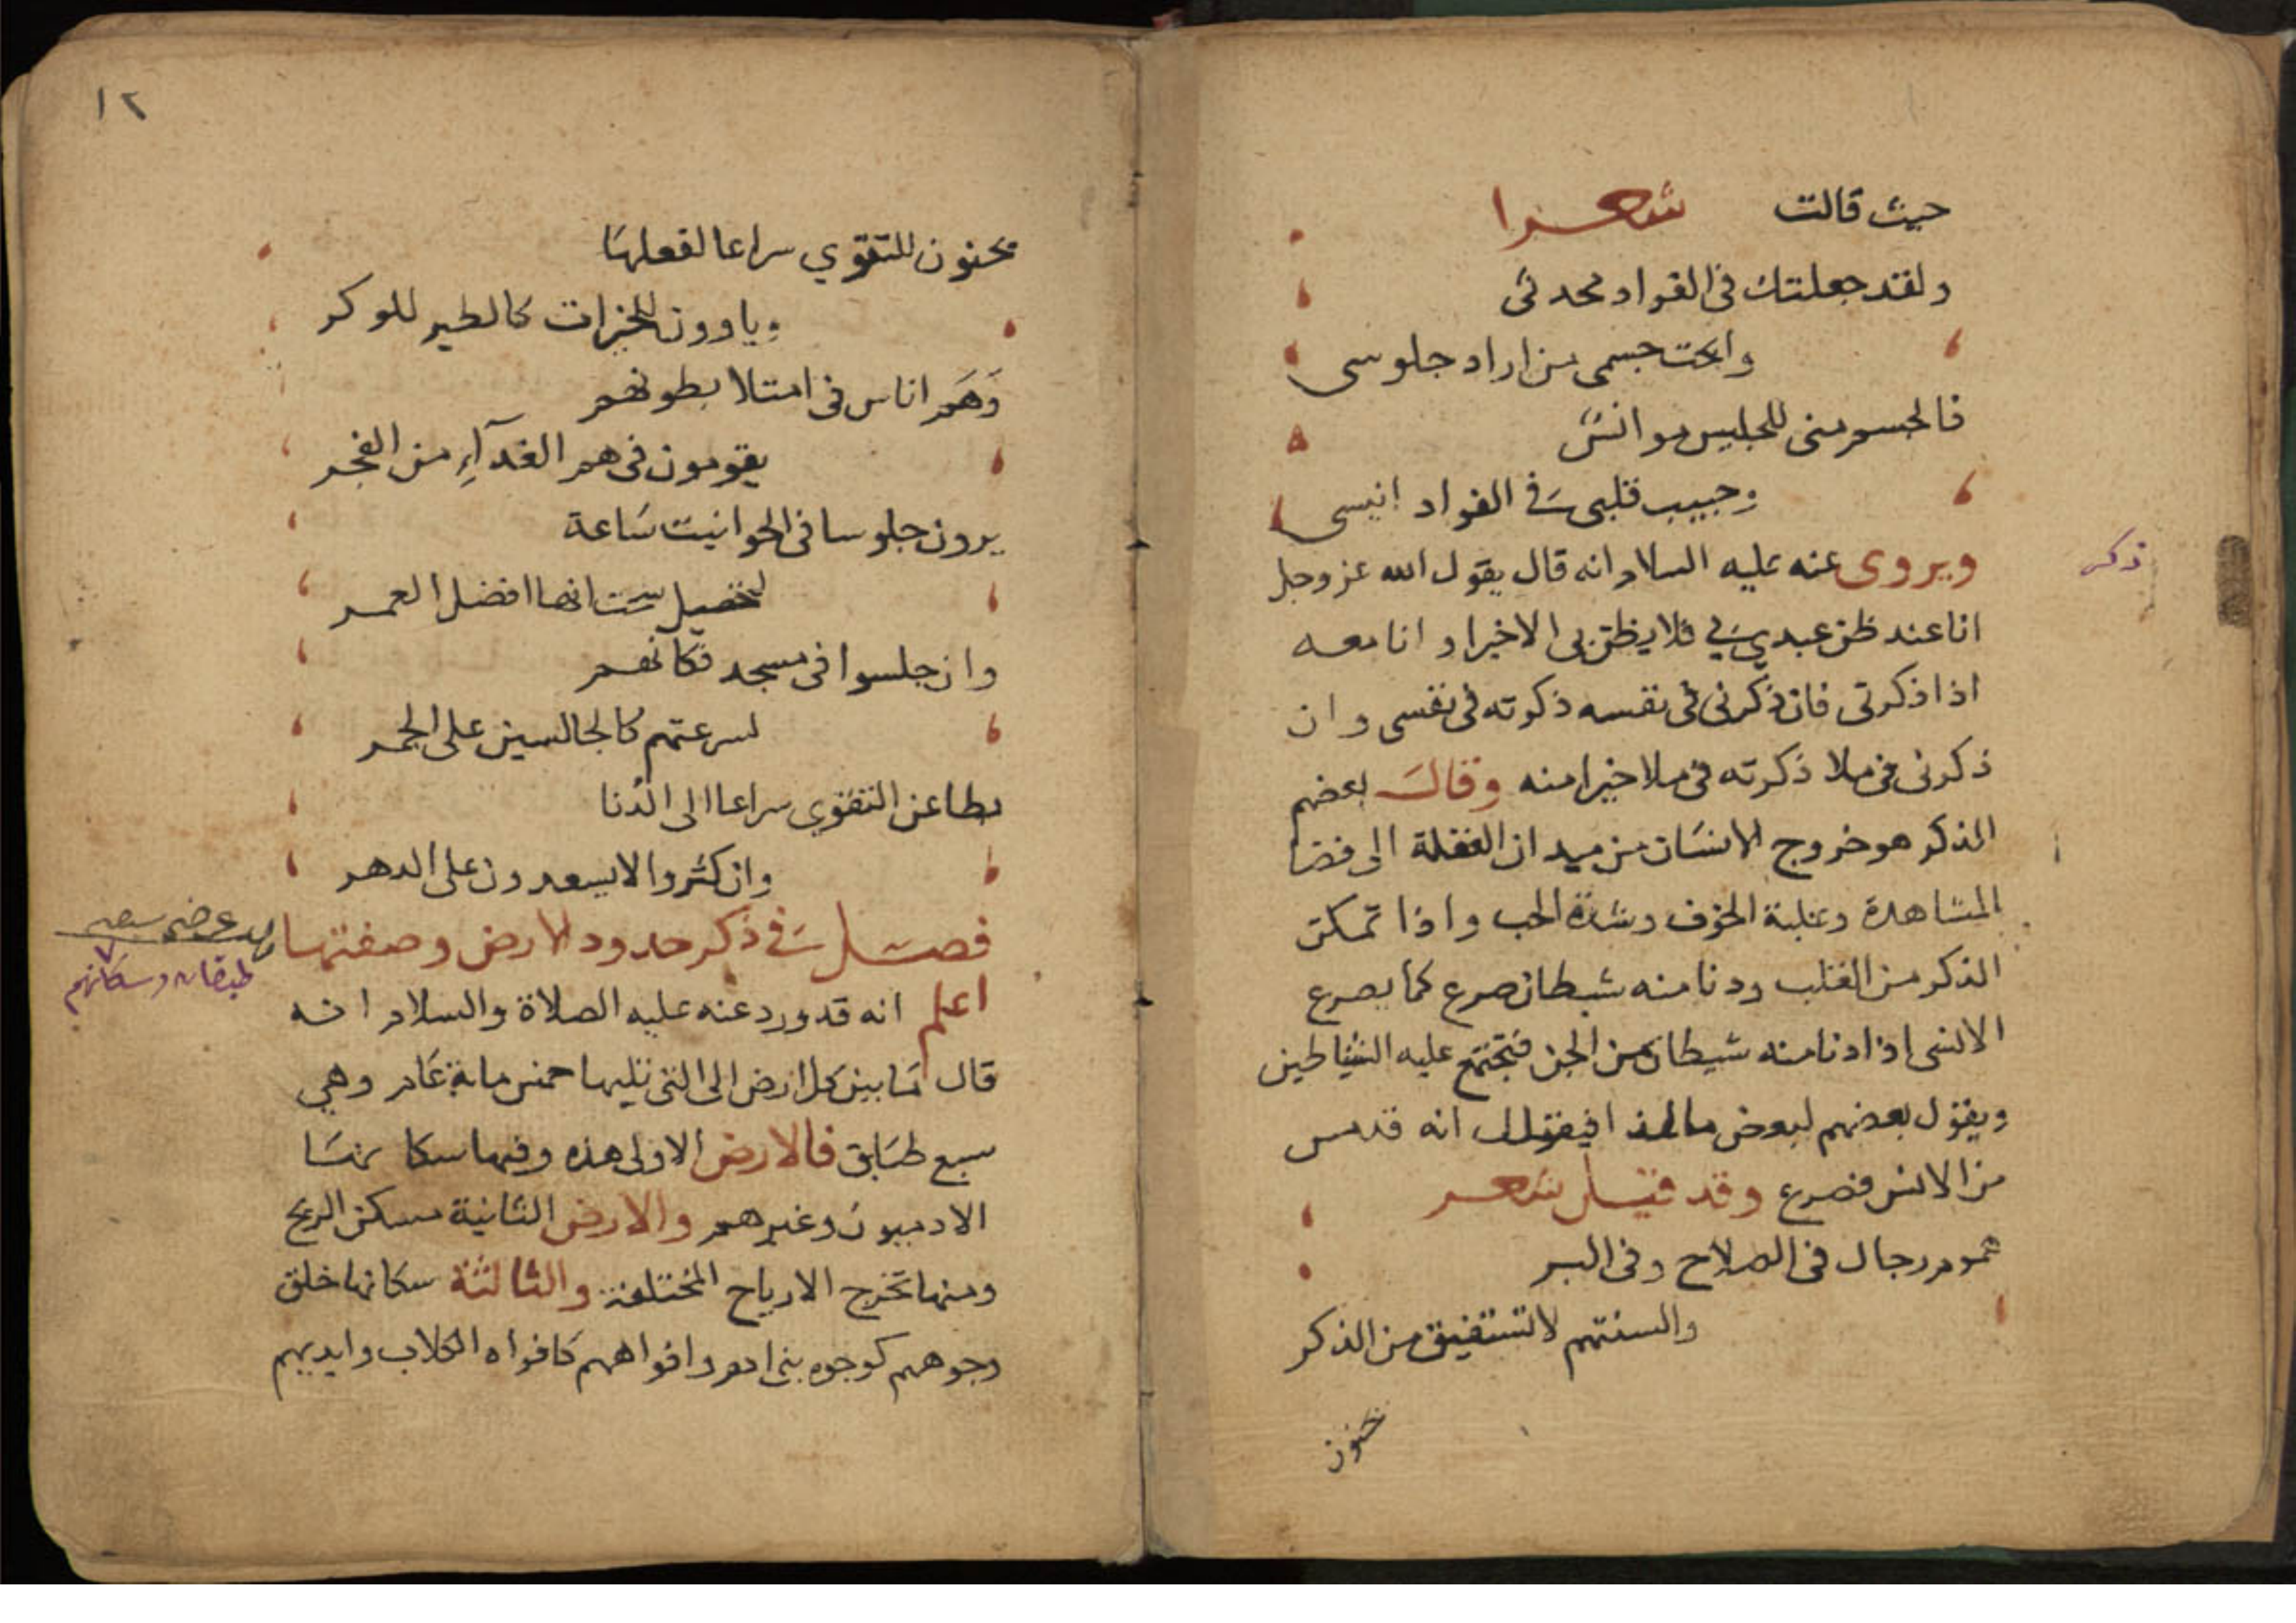 حيث قالت شعرا
ولقد جعلتك في الفواد محدثي
وابحت جسمي من اراد جلوسي
فالجسم مني للجليس موانس
وحبيب قلبي في الفواد انيسي
ذكر
ويروى عنه عليه السلام انه قال يقول الله عز وجل
انا عند ظن عبدي بي فلا يظن بي الا خيرا وانا معه
اذا ذكرني فان ذكرني في نفسه ذكرته في نفسي وان
ذكرني في ملا ذكرته في ملا خيرا منه وقال بعضهم
الذكر هو خروج الانسان من ميدان الغفلة الى فضا
المشاهدة وغلبة الخوف وشدة الحب واذا تمكن
الذكر من القلب ودنا منه شيطان صرع كما يصرع
الانسي اذا دنا منه شيطان من الجن فتجتمع عليه الشياطين
ويقول بعضهم لبعض ما لهذا فيقال انه قد مس
من الانس فصرع وقد قيل شعر
هموم رجال في الصلاح وفي البر
والسنتهم لا تستفيق من الذكر
١٢
يحنون للتقوي سراعا لفعلها
وياوون للخيرات كالطير للوكر
وهم اناس في امتلا بطونهم
يقومون في هم الغدآء من الفجر
يرون جلوسا في الحوانيت ساعة
لتحصيل شت انها افضل العمر
وان جلسوا في مسجد فكانهم
لسرعتهم كالجالسين على الجمر
بطا عن التقوي سراعا الى الدنا
وان كثروا لا يسعدون على الدهر
فصل في ذكر حدود الارض وصفتها
طبقات وسكانهم
اعلم انه قد ورد عنه عليه الصلاة والسلام انه
قال ما بين كل ارض الى التي تليها خمس ماية عام وهي
سبع طباق فالارض الاولى هذه وفيها سكانها
الادميون وغيرهم والارض الثانية مسكن الريح
ومنها تخرج الارياح المختلفة والثالثة سكانها خلق
وجوههم كوجوه بني ادم وافواههم كافواه الكلاب وايديهم